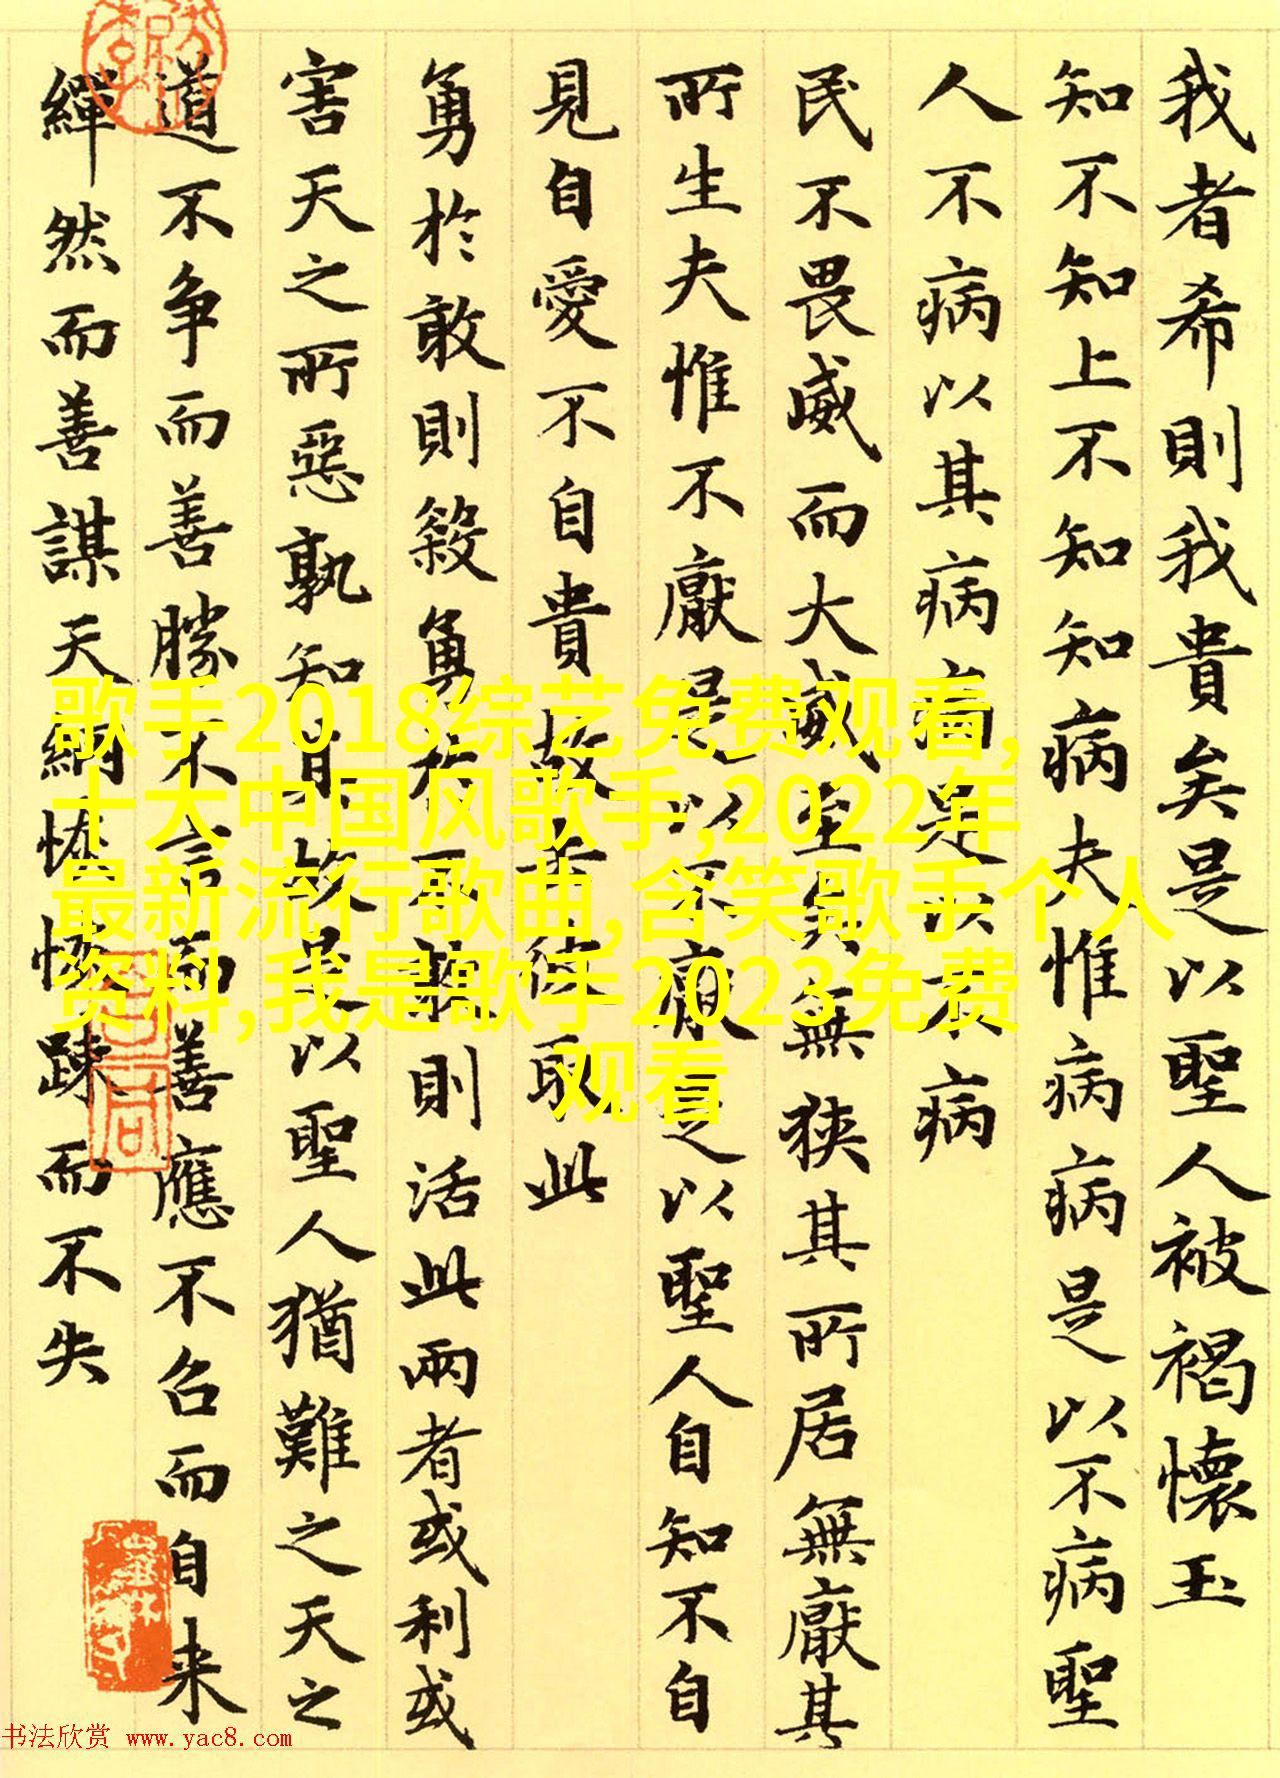 我者希則我貴矣是以聖人被褐懷玉
知不知上不知知病夫惟病病是以不病聖
人不病以其病病是以不病
民不畏威而大威至矣無狹其所居無厭其
所生夫惟不厭是以不厭是以聖人自知不自
見自愛不自貴故去彼取此
勇於敢則殺勇於不敢則活此兩者或利或
害天之所惡孰知其故是以聖人猶難之天之
道不争而善勝不言而善應不召而自来
繟然而善謀天網恢恢踈而不失
歌手2018综艺免费观看,
十大中国风歌手,2022年
最新流行歌曲,含笑歌手个人
资料,我是歌手2023免费
观看
书法欣赏 www.yac8.com